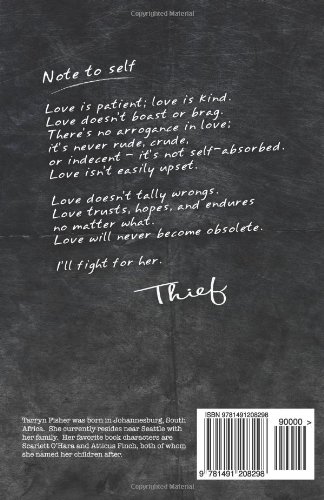 Note to self
Love is patient; love is kind.
Love doesn't boast or brag.
There's no arrogance in love;
it's never rude, crude,
or indecent – it's not self-absorbed.
Love isn't easily upset.
Love doesn't tally wrongs.
Love trusts, hopes, and endures
no matter what.
Love will never become obsolete.
I'll fight for her.
Thief
Tarryn Fisher was born in Johannesburg, South
Africa. She currently resides near Seattle with
her family. Her favorite book characters are
Scarlett O'Hara and Atticus Finch, both of whom
she named her children after.
ISBN 9781491208298
90000 >
9 781491 208298